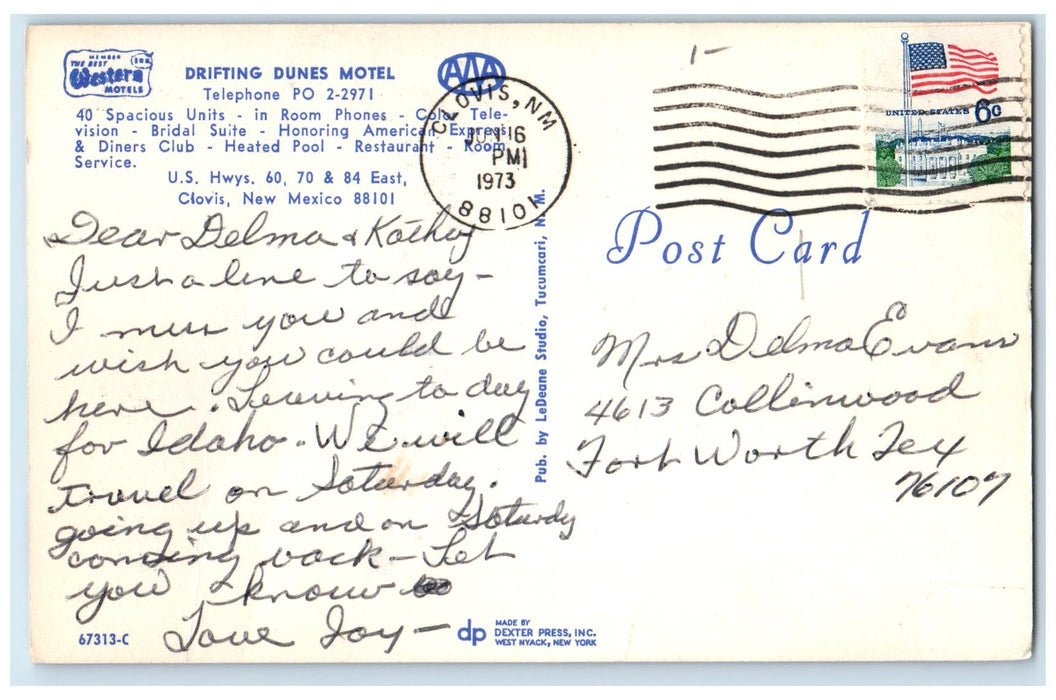 MEMBER
THE BEST
Western
MOTELS
DRIFTING DUNES MOTEL
Telephone PO 2-2971
40 Spacious Units - in Room Phones - Color Tele-
vision - Bridal Suite - Honoring American Express
& Diners Club - Heated Pool - Restaurant - Room
Service.
U.S. Hwys. 60, 70 & 84 East,
Clovis, New Mexico 88101
AAA
CLOVIS, NM
JUN 16
PM
1973
88101
UNITED STATES 6c
Dear Delma & Kathy
Just a line to say -
I miss you and
wish you could be
here. Leaving to day
for Idaho. We will
travel on Saturday.
going up and on Saturdy
coming back - Let
you know
Love Joy -
Pub. by LeDeane Studio, Tucumcari, N. M.
Post Card
Mrs Delma Evans
4613 Collinwood
Fort Worth Tex
76107
67313-C
dp
MADE BY
DEXTER PRESS, INC.
WEST NYACK, NEW YORK